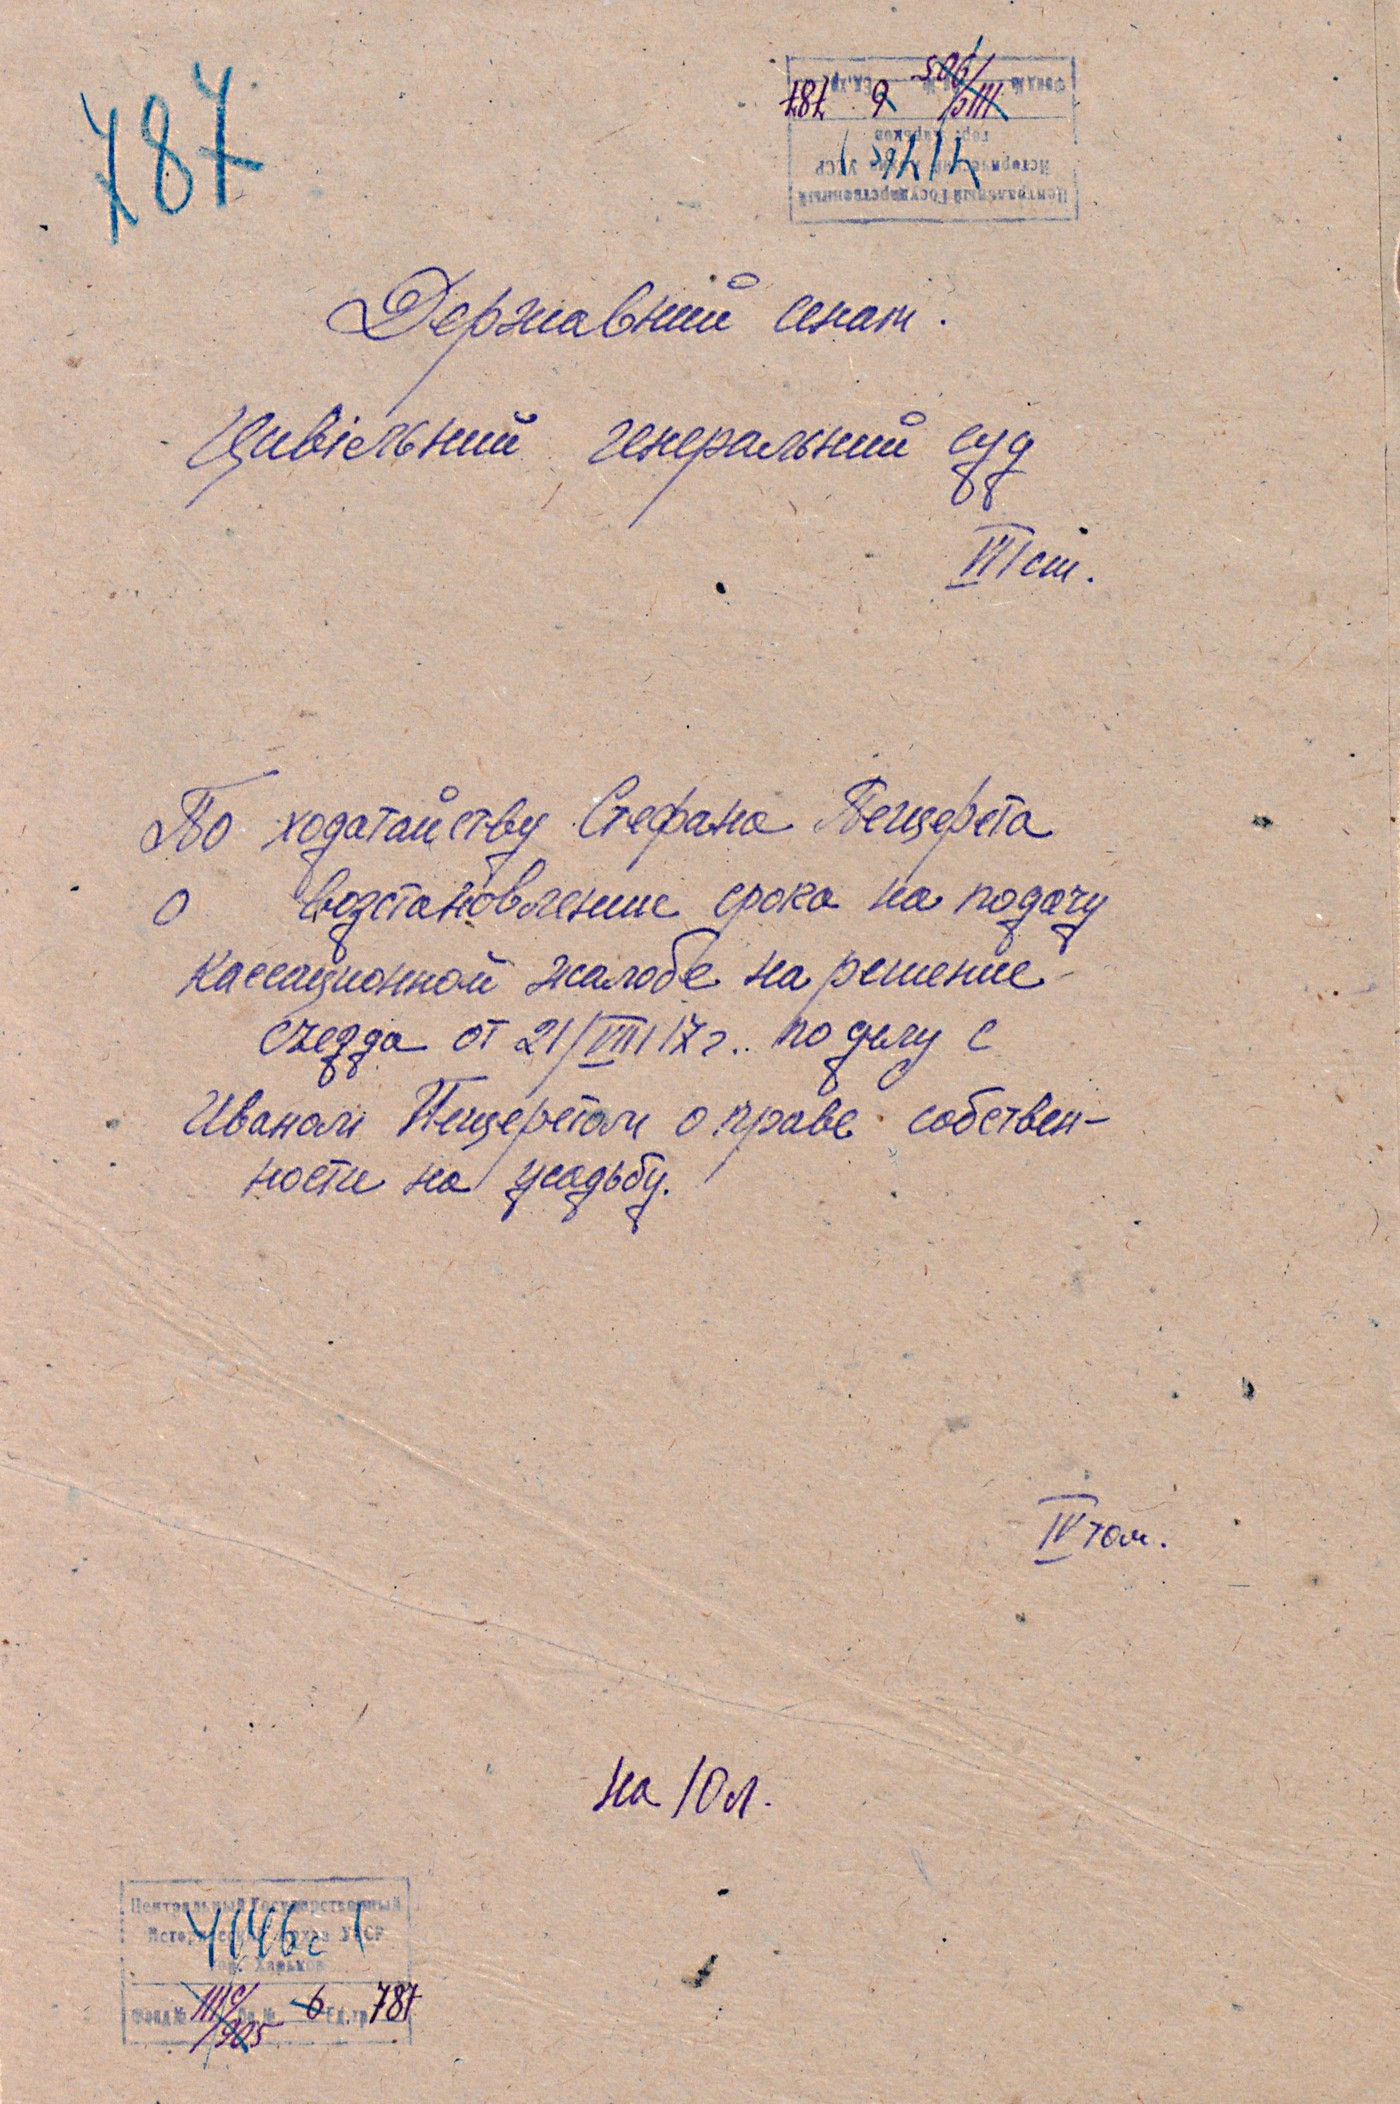 787
Державний сенат.
Цивільний генеральний суд
III ст.
По ходатайству Стефана Пещерета
о возстановлении срока на подачу
кассационной жалобе на решение
съезда от 21/VIII 17 г. по делу с
Иваном Пещеретом о праве собствен-
ности на усадьбу.
IV том.
на 10 л.
Центральный Государственный
Исторический Архив УССР
гор. Харьков
Фонд № Оп. № 6 Ед. хр. 787
Центральный Государственный
Исторический Архив УССР
гор. Харьков
Фонд № Оп. № 6 Ед. хр. 787